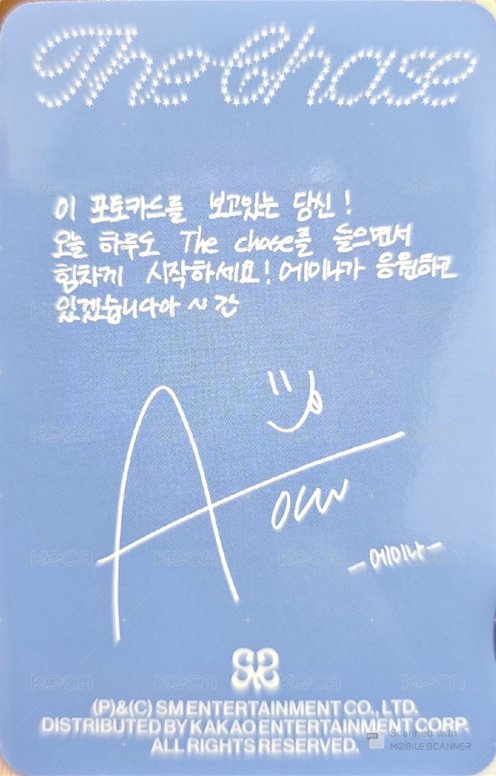 The Chase
이 포토카드를 보고있는 당신!
오늘 하루도 The chase를 들으면서
힘차게 시작하세요! 에이나가 응원하고
있겠습니다아 ~ 간
A
- 에이나 -
(P)&(C) SM ENTERTAINMENT CO., LTD.
DISTRIBUTED BY KAKAO ENTERTAINMENT CORP.
ALL RIGHTS RESERVED.
Scanned with
MOBILE SCANNER
KOCA